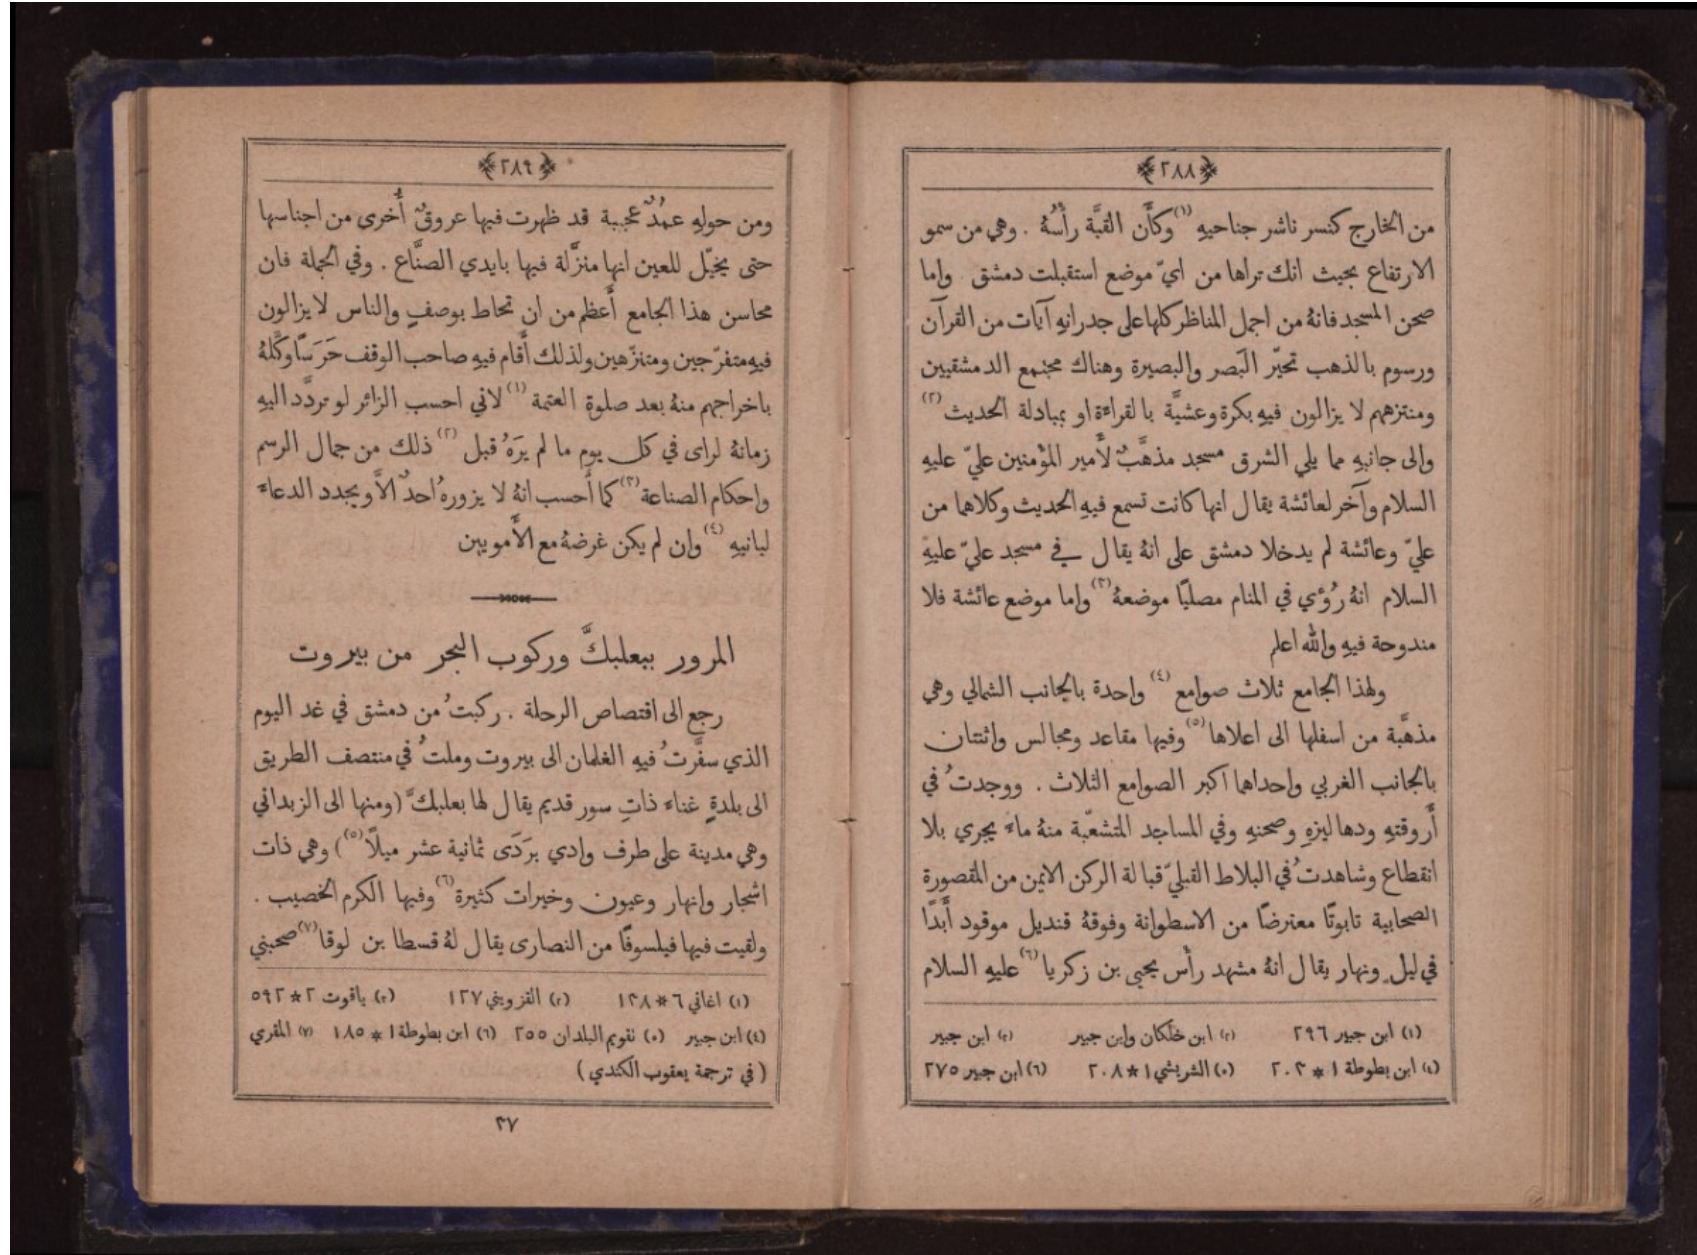 ﴿٢٨٨﴾
من الخارج كنسر ناشر جناحيهِ (١) وكأَن القبَّة رأسهُ . وهي من سمو
الارتفاع بحيث انك تراها من ايّ موضع استقبلت دمشق واما
صحن المسجد فانهُ من اجمل المناظر كلها على جدرانهِ آيات من القرآن
ورسوم بالذهب تحيّر البَصر والبصيرة وهناك مجتمع الدمشقيين
ومنتزههم لا يزالون فيهِ بكرة وعشيَّة بالقراءة او بمبادلة الحديث (٢)
والى جانبهِ مما يلي الشرق مسجد مذهَّبٌ لأَمير المؤمنين عليّ عليهِ
السلام وآخر لعائشة يقال انها كانت تسمع فيهِ الحديث وكلاهما من
عليّ وعائشة لم يدخلا دمشق على انهُ يقال في مسجد عليّ عليهِ
السلام انهُ رُؤي في المنام مصليًا موضعهُ (٣) واما موضع عائشة فلا
مندوحة فيهِ والله اعلم
ولهذا الجامع ثلاث صوامع (٤) واحدة بالجانب الشمالي وهي
مذهَّبة من اسفلها الى اعلاها (٥) وفيها مقاعد ومجالس واثنتان
بالجانب الغربي واحداهما اكبر الصوامع الثلاث . ووجدتُ في
أَروقتهِ ودهاليزهِ وصحنهِ وفي المساجد المتشعّبة منهُ ماءً يجري بلا
انقطاع وشاهدتُ في البلاط القبليّ قبالة الركن الايمن من المقصورة
الصحابية تابوتًا معترضًا من الاسطوانة وفوقهُ قنديل موقود أَبدًا
في ليل ونهار يقال انهُ مشهد رأس يحيى بن زكريا (٦) عليهِ السلام
(١) ابن جبير ٢٩٦ (٢) ابن خلكان وابن جبير (٣) ابن جبير
(٤) ابن بطوطة ١ * ٢٠٣ (٥) الشريشي ١ * ٢٠٨ (٦) ابن جبير ٢٧٥
﴿٢٨٩﴾
ومن حولهِ عمُدٌ عجيبة قد ظهرت فيها عروقٌ أُخرى من اجناسها
حتى يخيَّل للعين انها منزَّلة فيها بايدي الصنَّاع . وفي الجملة فان
محاسن هذا الجامع أَعظم من ان تحاط بوصفٍ والناس لا يزالون
فيهِ متفرّجين ومتنزّهين ولذلك أَقام فيهِ صاحب الوقف حَرَسًا وكَّلهُ
باخراجهم منهُ بعد صلوة العتمة (١) لاني احسب الزائر لو تردَّد اليهِ
زمانهُ لراى في كل يوم ما لم يَرَهُ قبل (٢) ذلك من جمال الرسم
واحكام الصناعة (٣) كما أَحسب انهُ لا يزورهُ احدٌ الاَّ ويجدد الدعاءَ
لبانيهِ (٤) وان لم يكن غرضهُ مع الأَمويين
المرور ببعلبكَّ وركوب البحر من بيروت
رجع الى اقتصاص الرحلة . ركبتُ من دمشق في غد اليوم
الذي سفَّرتُ فيهِ الغلمان الى بيروت وملتُ في منتصف الطريق
الى بلدةٍ غناء ذاتِ سور قديم يقال لها بعلبكّ (ومنها الى الزبداني
وهي مدينة على طرف وادي بَرَدَى ثمانية عشر ميلًا (٥)) وهي ذات
اشجار وانهار وعيون وخيرات كثيرة (٦) وفيها الكرم الخصيب .
ولقيت فيها فيلسوفًا من النصارى يقال لهُ قسطا بن لوقا (٧) صحبني
(١) اغاني ٦ * ١٣٨ (٢) القزويني ١٢٧ (٣) ياقوت ٢ * ٥٩٢
(٤) ابن جبير (٥) تقويم البلدان ٢٥٥ (٦) ابن بطوطة ١ * ١٨٥ (٧) المقري
( في ترجمة يعقوب الكندي )
٣٧